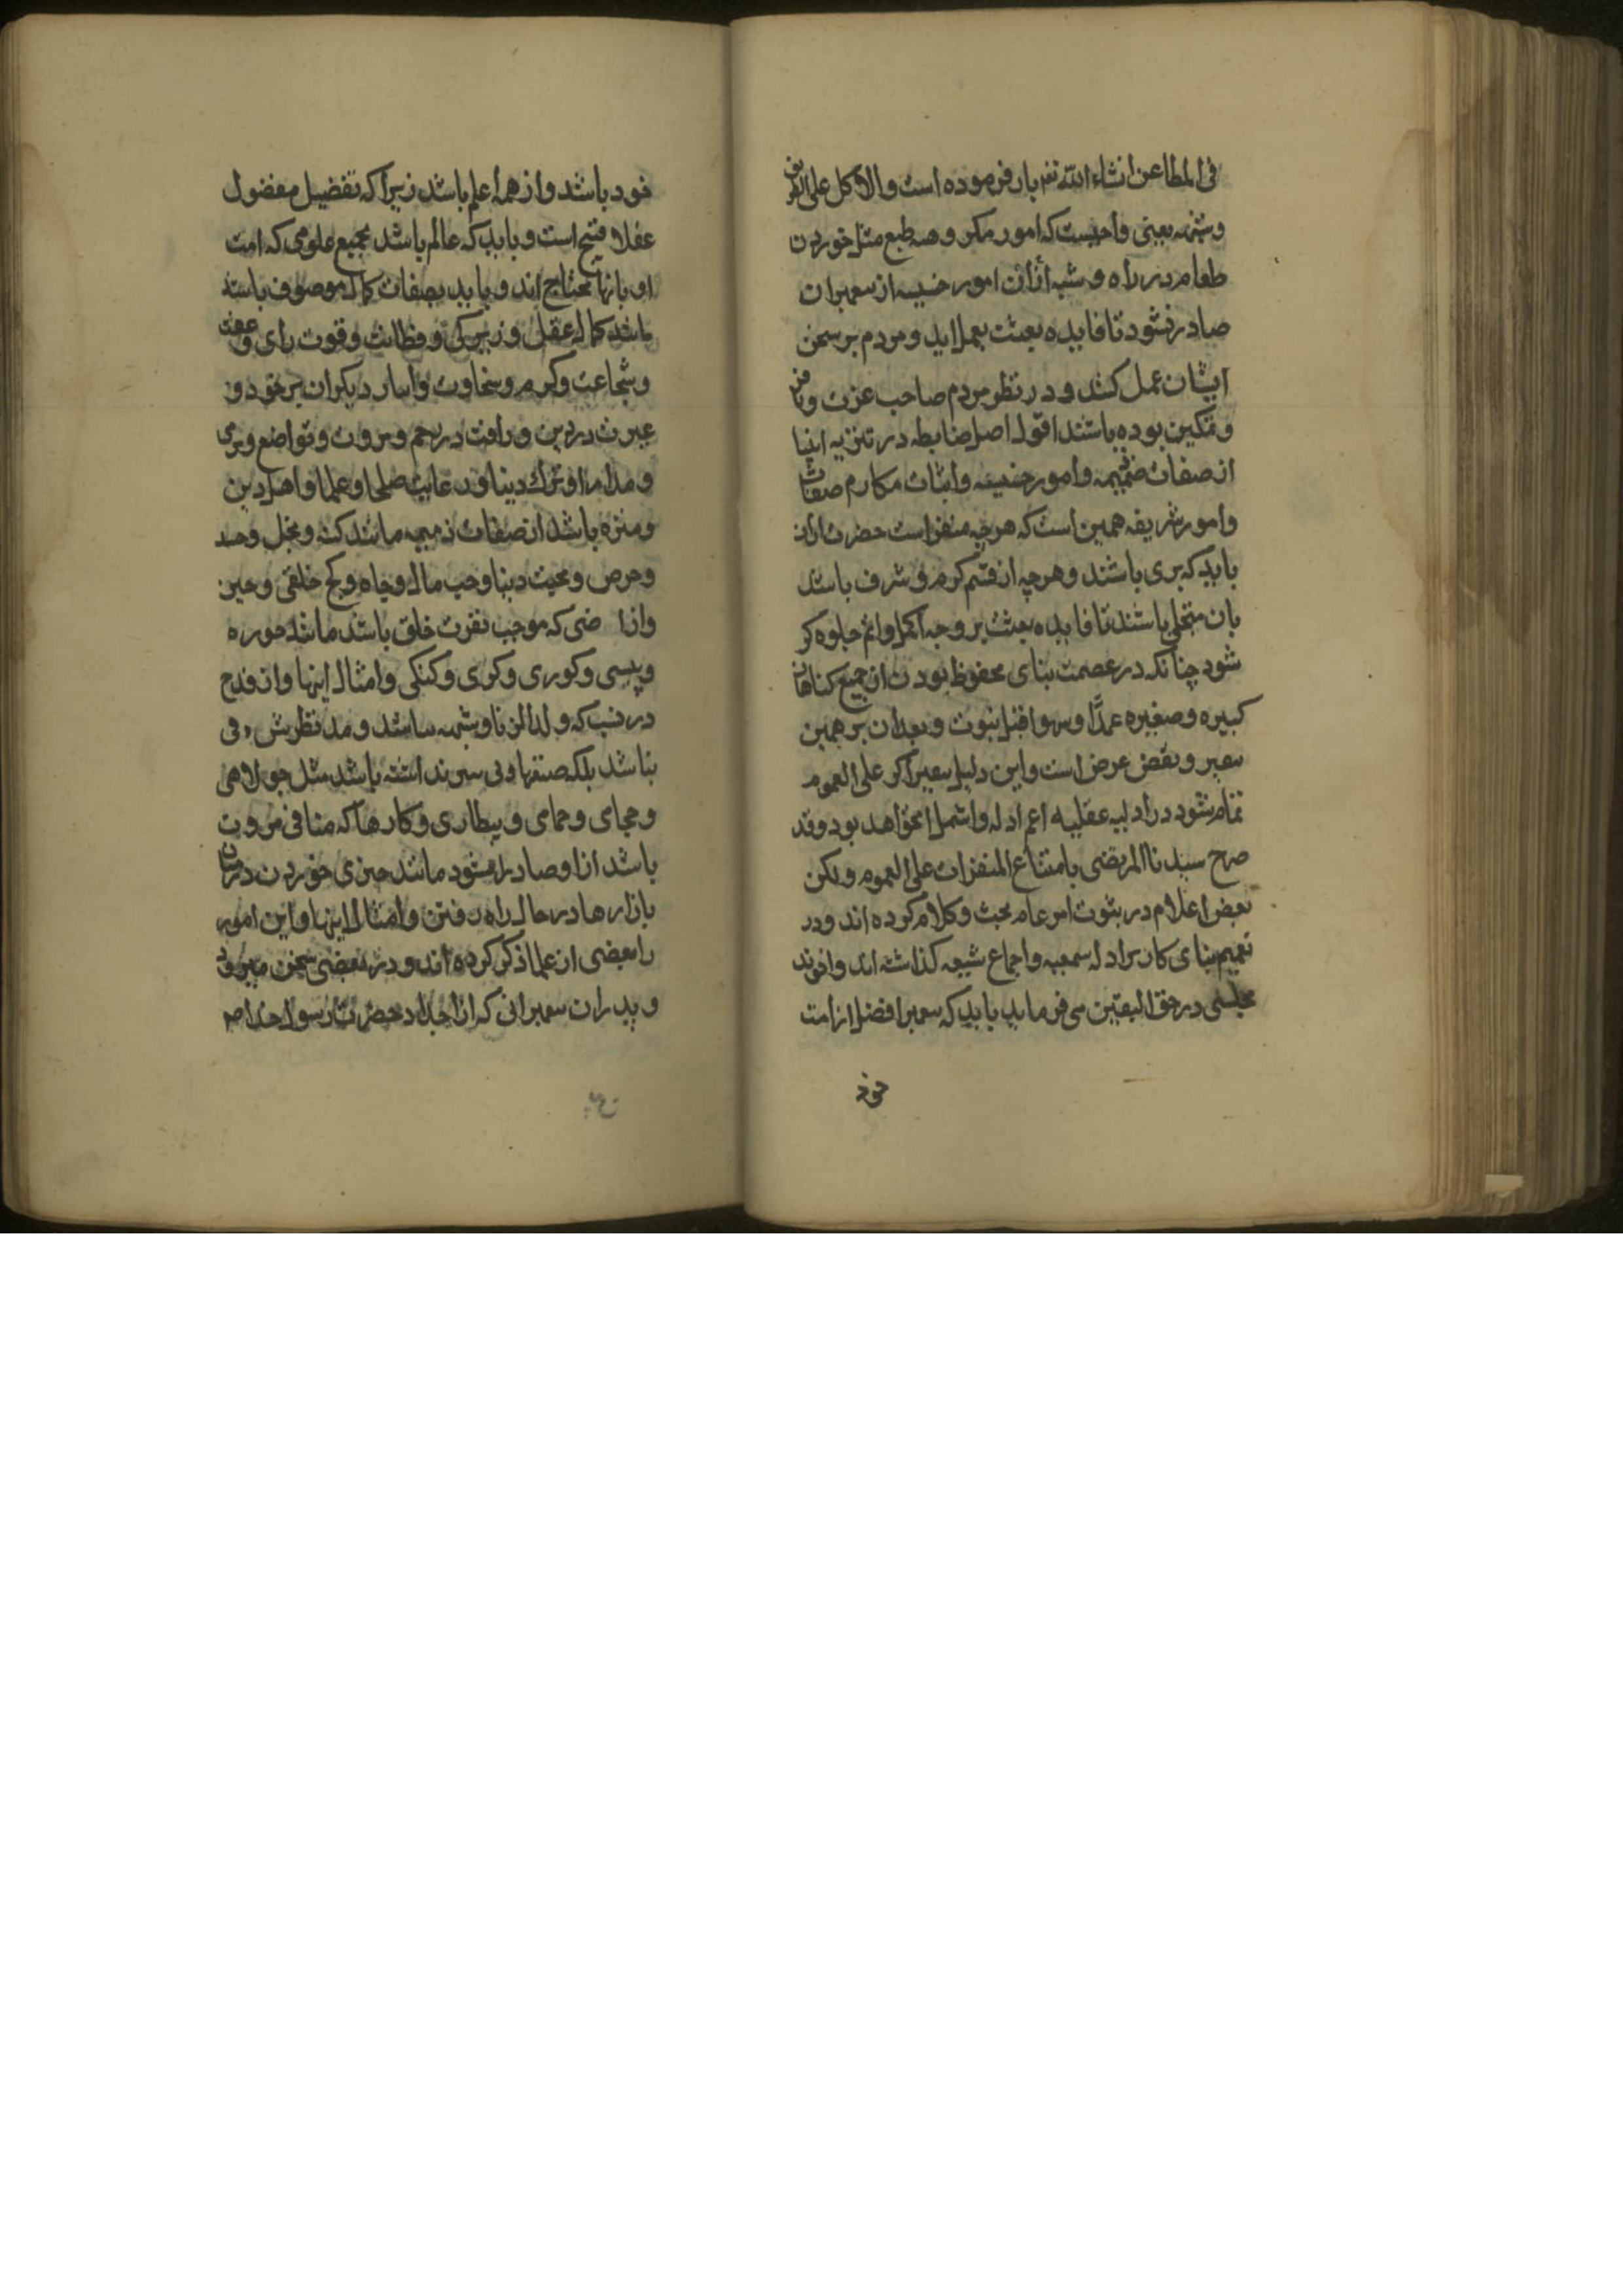 فی المطاعن انشاء الله تعم بار فرموده است والاکل علی الطریق
وشبهه یعنی واجبست که امور مکروهه طبع مثل خوردن
طعام در راه و شبه آن از امور خسیسه از پیغمبران
صادر نشود تا فایده بعثت بعمل اید و مردم بر سخن
ایشان عمل کنند و در نظر مردم صاحب عزت و
و تمکین بوده باشند اقول اصل ضابطه در تنزیه انبیا
از صفات ذمیمه وامور خسیسه واثبات مکارم صفات
وامور شریفه همین است که هرچه منفر است حضرت از ان
باید که بری باشند و هرچه از قسم کرم و شرف باشد
بان متحلی باشند تا فایده بعثت بر وجه اکمل واتم جلوه کر
شود چنانکه در عصمت بنای محفوظ بودن از جمیع کناهان
کبیره وصغیره عمدًا وسهوا قبل نبوت و بعد ان بر همین
تنفیر و نقض غرض است واین دلیل تنفیر اکر علی العموم
تمام شود در ادلیه عقلیه اعم ادله واشمل انخواهد بود وقد
صرح سیدنا المرتضی بامتناع المنفرات علی العموم ولکن
بعض اعلام در ثبوت امر عام بحث وکلام کرده اند ودر
تعمیم بنای کار بر ادله سمعیه واجماع شیعه کذاشته اند واخوند
مجلسی در حق الیقین می فرماید باید که پیغمبر افضل از امت
خود
خود باشد واز همه اعلم باشد زیرا که تفضیل مفضول
عقلا قبیح است و باید که عالم باشد بجمیع علومی که امت
او بانها محتاج اند و باید بصفات کمال موصوف باشد
مانند کمال عقل و زیرکی و فطانت و قوت رای و عفت
وشجاعت وکرم وسخاوت وایثار دیکران بر خود و
غیرت در دین و رافت در رحم و مروت و تواضع و نرمی
و مدارا وترک دنیا ورعایت صلحا وعلما واهل دین
ومنزه باشد از صفات ذمیمه مانند کینه و بخل وحسد
وحرص و محبت دنیا وحب مال وجاه و کج خلقی وجبن
واز ا ضی که موجب نفرت خلق باشد مانند خوره
وپیسی وکوری وکری وکنکی وامثال اینها واز قدح
در نسب که ولدالزنا وشبهه نباشد و مد نظرش دنی
نباشد بلکه صنعتهای دنی نیز نداشته باشد مثل جولاهی
و حجامی و حمامی و بیطاری وکارها که منافی مروت
باشد از او صادر نشود مانند چیزی خوردن در میان
بازارها در حال راه رفتن وامثال اینها واین امور
را بعضی از علما ذکر کرده اند ودر بعضی سخن میرود
و پدران پیغمبرانی که از اجداد حضرت رسول خدا ص